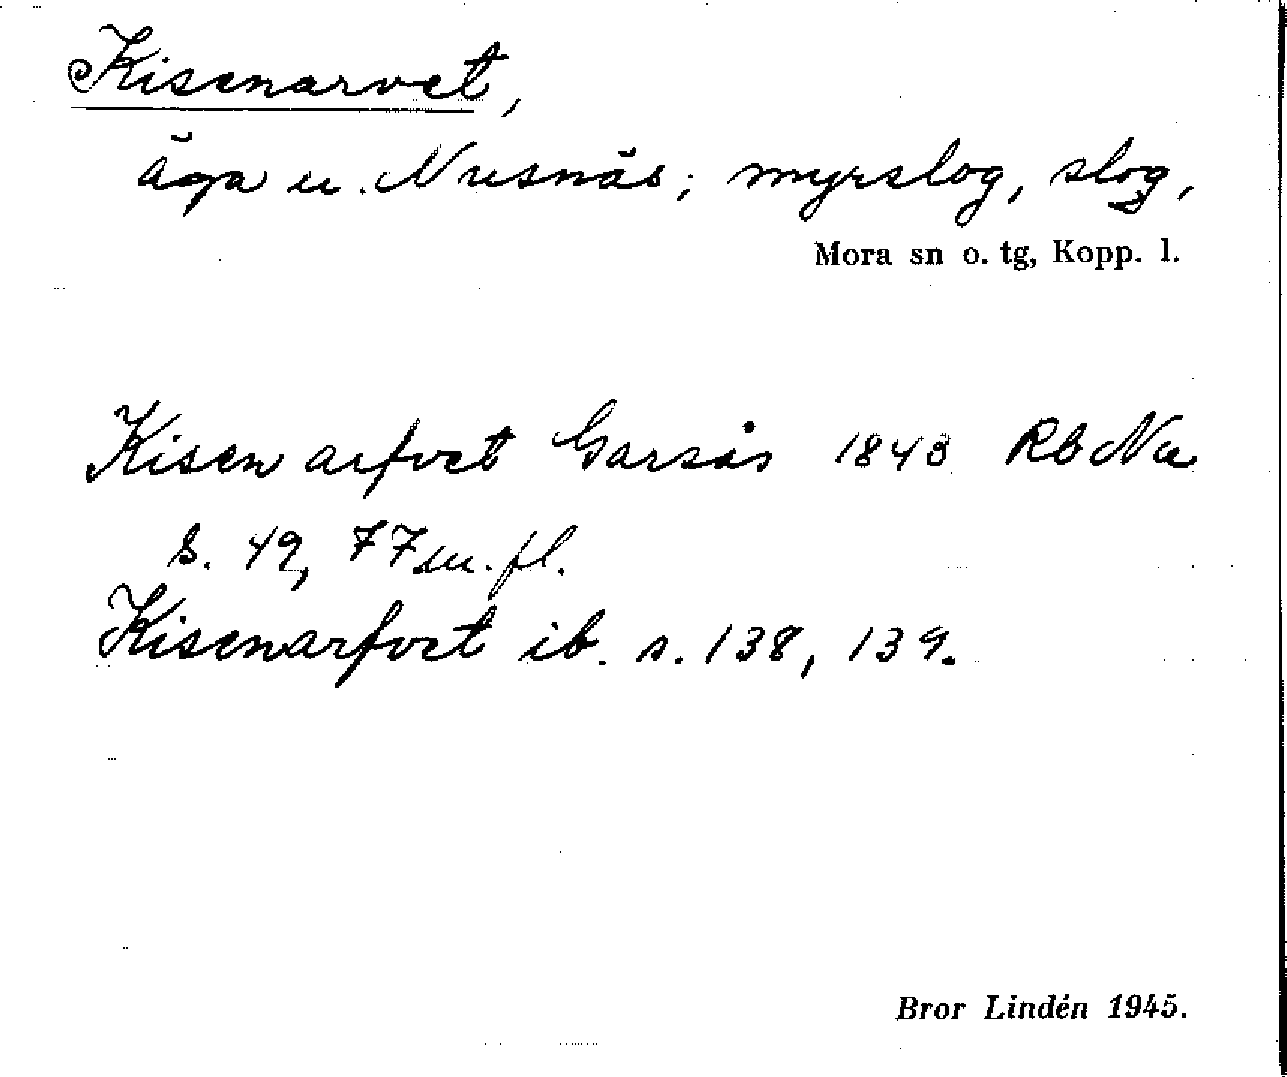 Kisenarvet,
äga u. Nusnäs; myrslog, slog,
Mora sn o. tg, Kopp. l.
Kisen arfvet Garsås 1843 Rb Nu
s. 49, 77 m. fl.
Kisenarfvet ib. s. 138, 139.
Bror Lindén 1945.